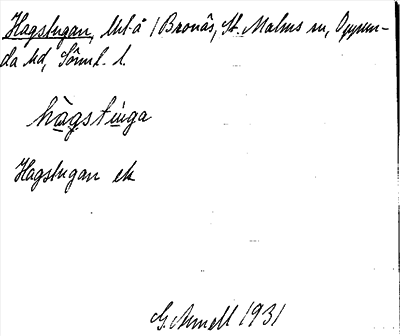 Hagstugan, lht å /Bronäs, St. Malms sn, Oppun-
da hd, Sörml. l.
hàgstúga
Hagstugan ek
G. Armell 1931